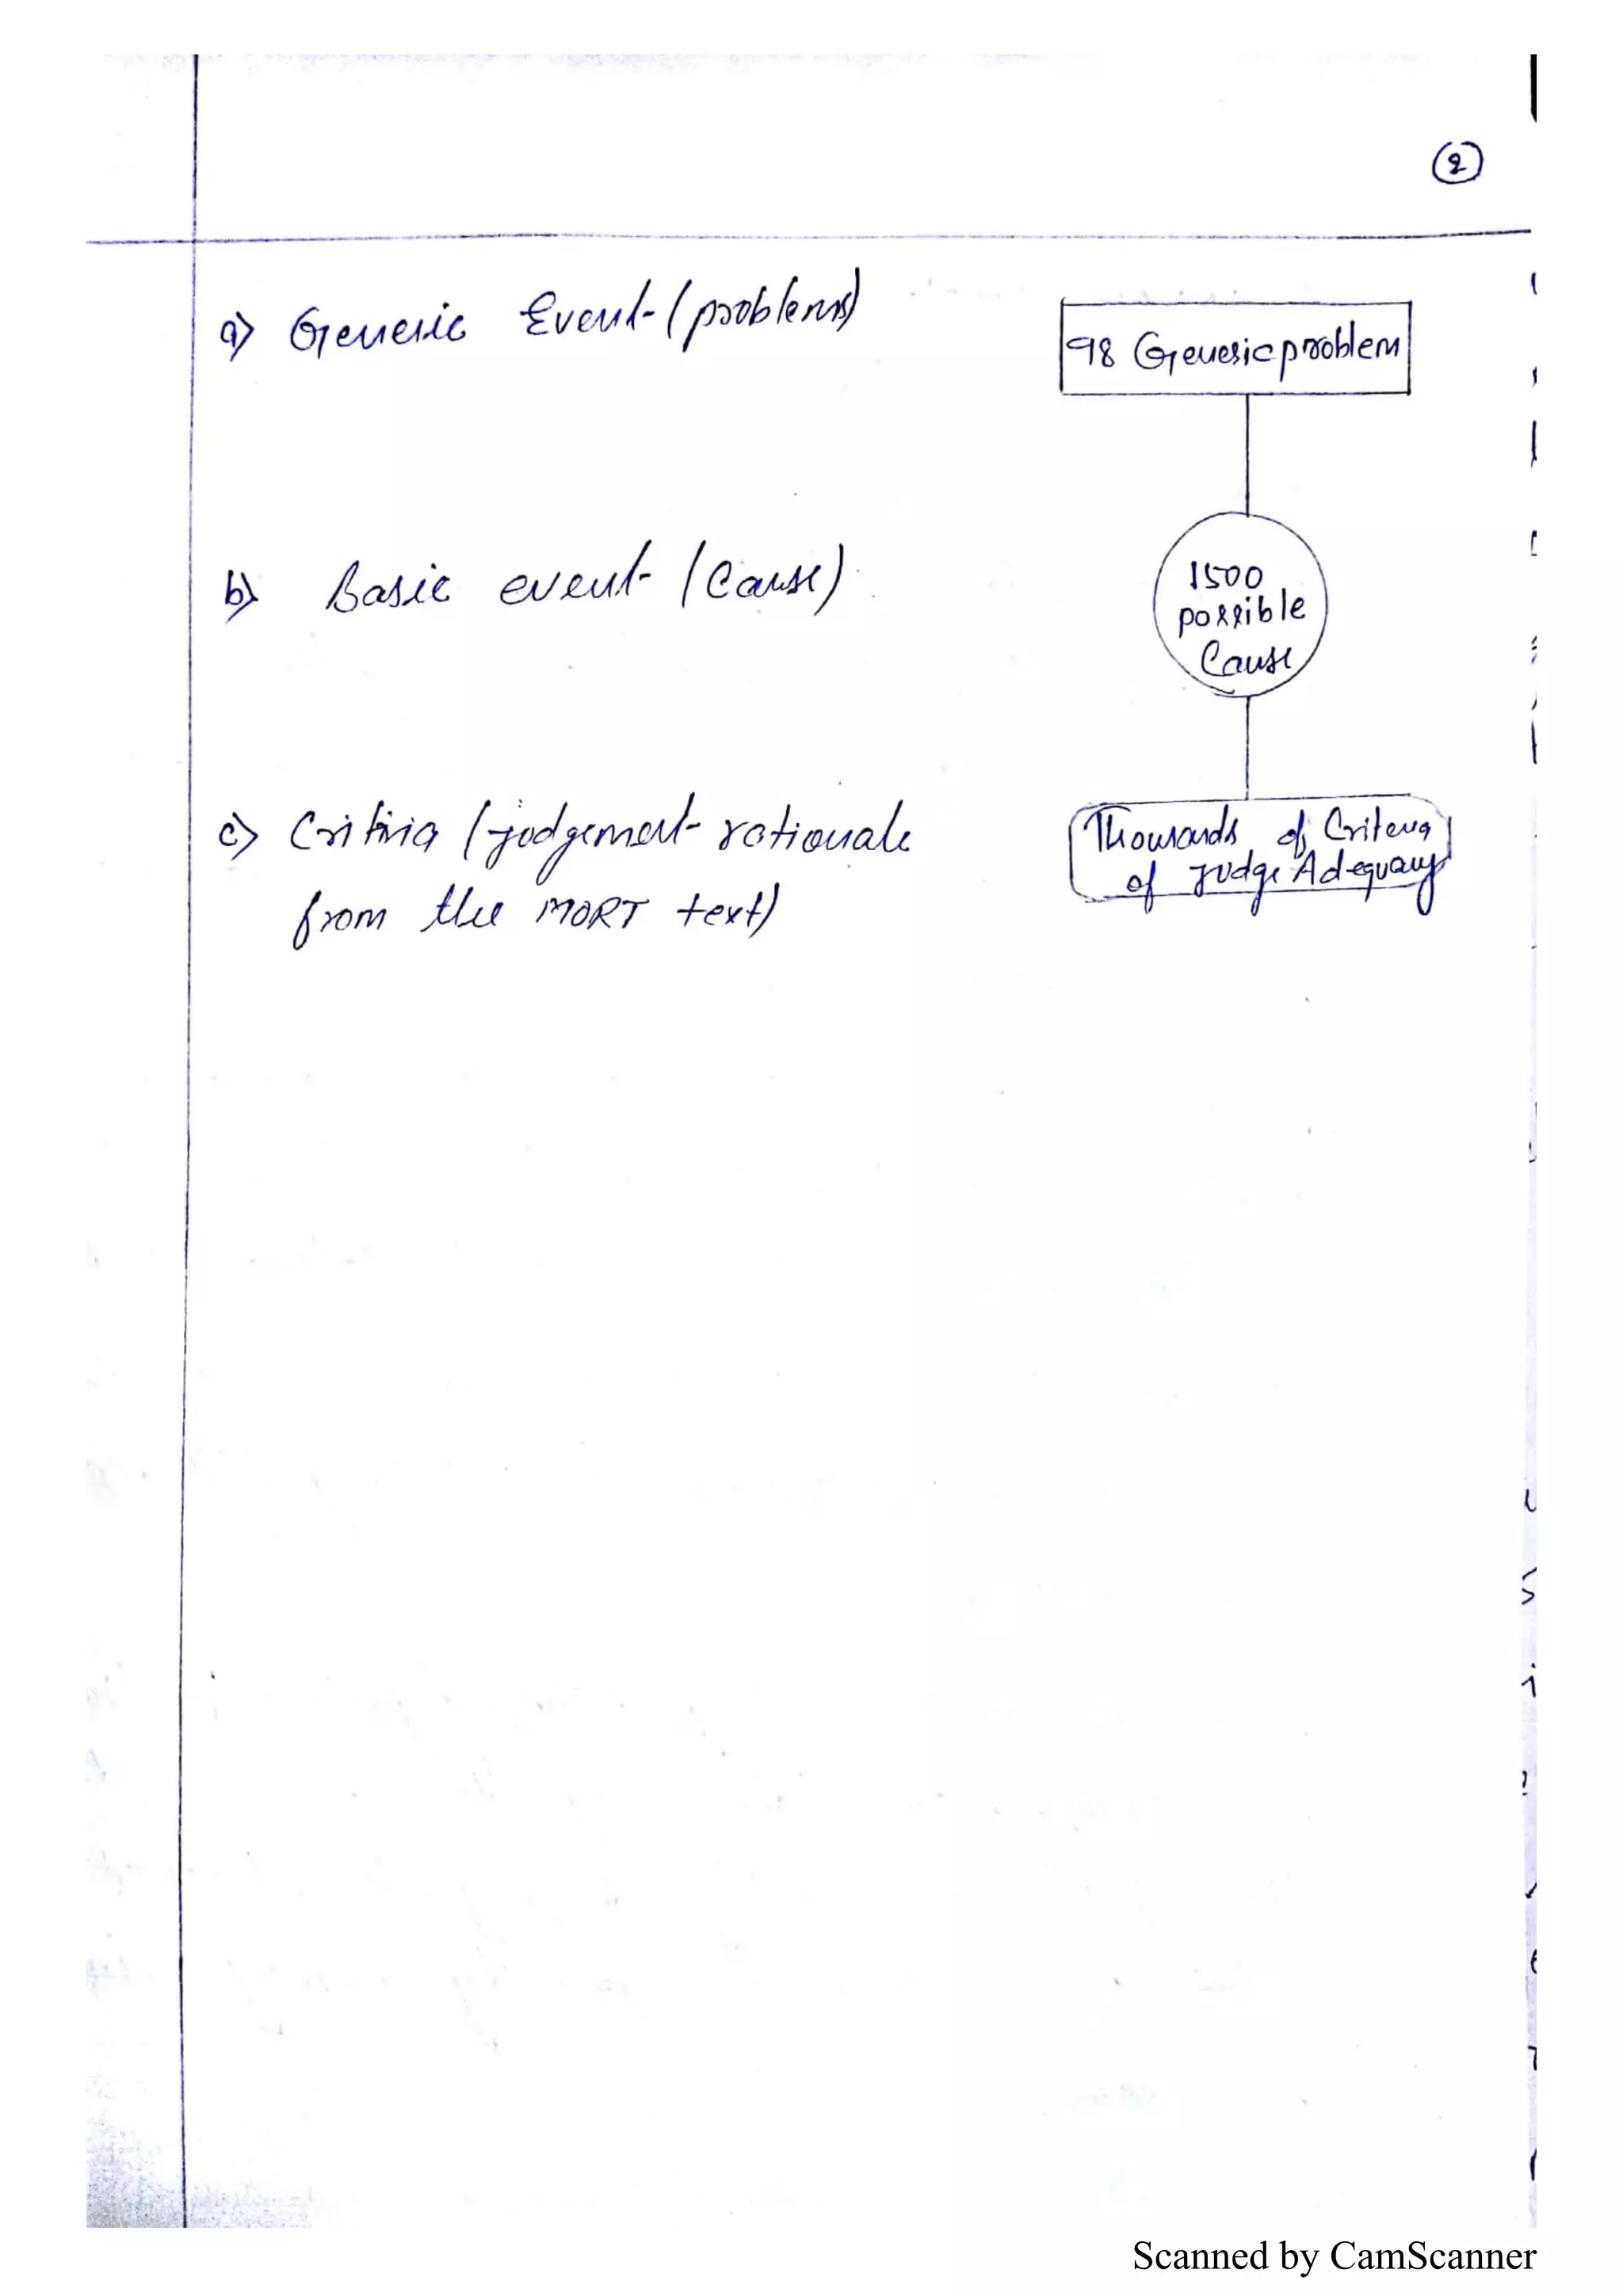 2
a) Generic Event (problems)
98 Generic problem
b) Basic event (Cause)
1500
possible
Cause
c) Critiria (judgement rationale
from the MORT text)
Thousands of Criteria
of Judge Adequacy
Scanned by CamScanner